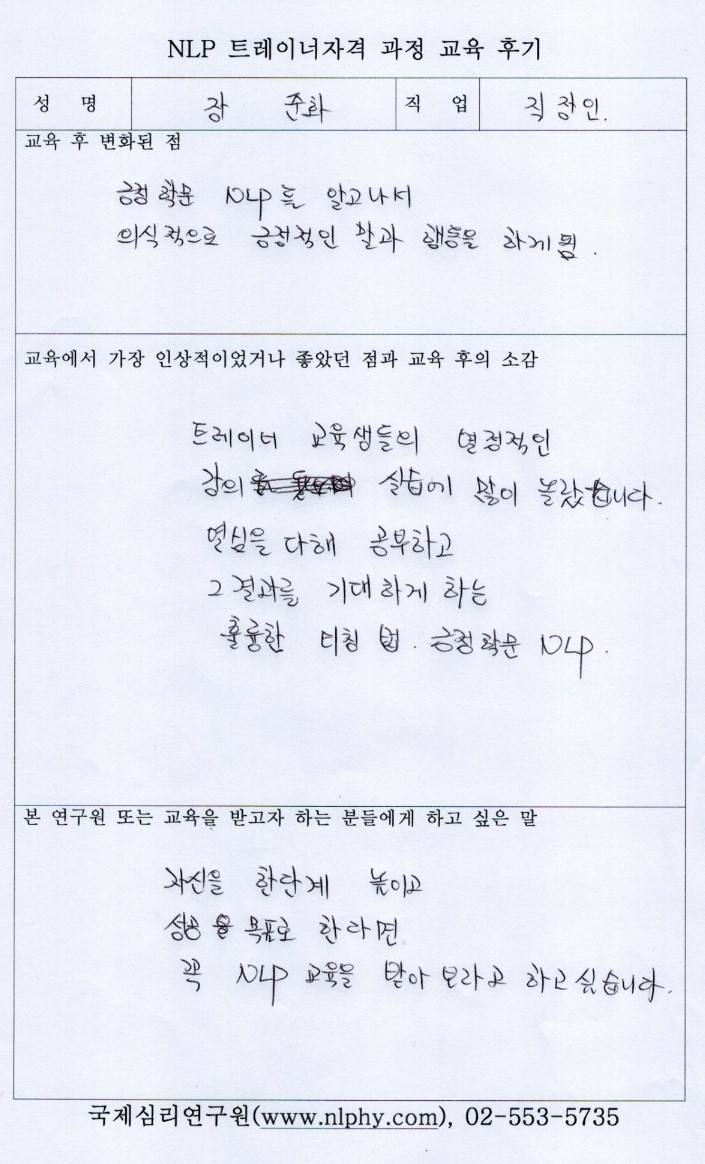 NLP 트레이너자격 과정 교육 후기
성 명 장 준화 직 업 직장인.
교육 후 변화된 점
긍정학문 NLP를 알고나서
의식적으로 긍정적인 말과 행동을 하게됨.
교육에서 가장 인상적이었거나 좋았던 점과 교육 후의 소감
트레이너 교육생들의 열정적인
강의 실습에 많이 놀랐습니다.
열심을 다해 공부하고
그 결과를 기대하게 하는
훌륭한 티칭 법. 긍정학문 NLP.
본 연구원 또는 교육을 받고자 하는 분들에게 하고 싶은 말
자신을 한단계 높이고
성공을 목표로 한다면
꼭 NLP 교육을 받아 보라고 하고 싶습니다.
국제심리연구원(www.nlphy.com), 02-553-5735